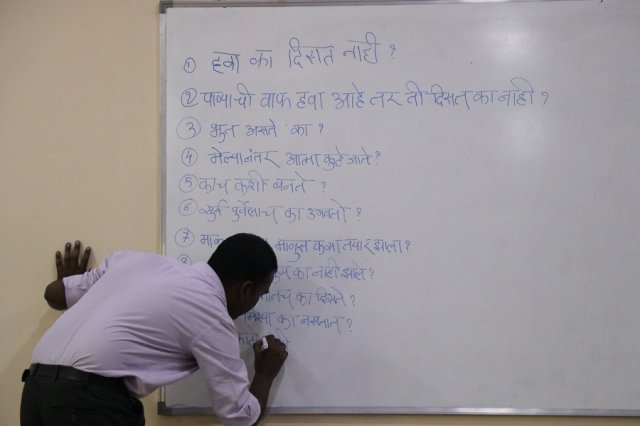 ① हवा का दिसत नाही ?
② पाण्याची वाफ हवा आहे तर ती दिसत का नाही ?
③ भुत असते का ?
④ मेल्यानंतर आत्मा कुठे जाते ?
⑤ काच कशी बनते ?
⑥ सुर्य पुर्वेलाच का उगवतो ?
⑦ माणुस कसा तयार झाला ?
का नाही झाले ?
का दिसते ?
का नसतात ?